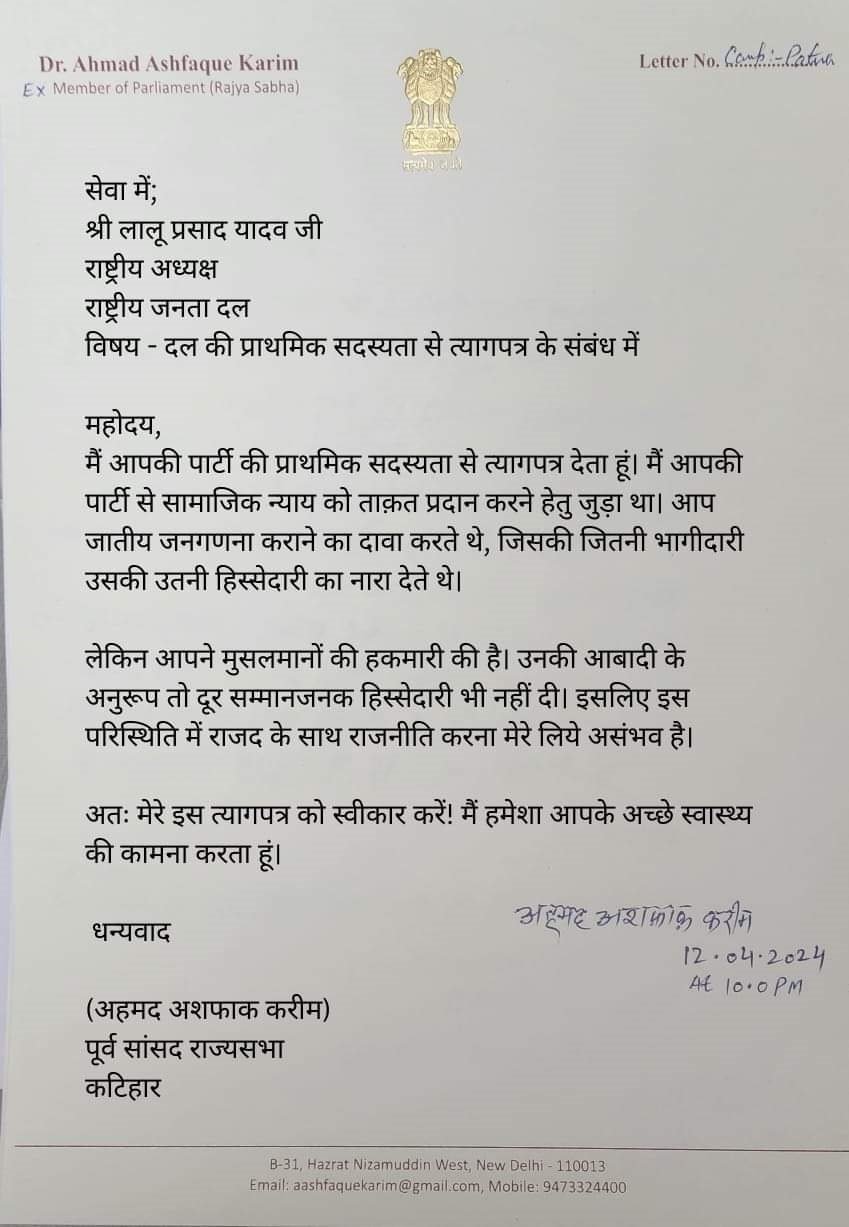 Dr. Ahmad Ashfaque Karim
Ex Member of Parliament (Rajya Sabha)
Letter No. Camp:- Patna
सत्यमेव जयते
सेवा में;
श्री लालू प्रसाद यादव जी
राष्ट्रीय अध्यक्ष
राष्ट्रीय जनता दल
विषय - दल की प्राथमिक सदस्यता से त्यागपत्र के संबंध में
महोदय,
मैं आपकी पार्टी की प्राथमिक सदस्यता से त्यागपत्र देता हूं। मैं आपकी
पार्टी से सामाजिक न्याय को ताक़त प्रदान करने हेतु जुड़ा था। आप
जातीय जनगणना कराने का दावा करते थे, जिसकी जितनी भागीदारी
उसकी उतनी हिस्सेदारी का नारा देते थे।
लेकिन आपने मुसलमानों की हकमारी की है। उनकी आबादी के
अनुरूप तो दूर सम्मानजनक हिस्सेदारी भी नहीं दी। इसलिए इस
परिस्थिति में राजद के साथ राजनीति करना मेरे लिये असंभव है।
अतः मेरे इस त्यागपत्र को स्वीकार करें! मैं हमेशा आपके अच्छे स्वास्थ्य
की कामना करता हूं।
धन्यवाद
अहमद अशफ़ाक़ करीम
12.04.2024
At 10.0 PM
(अहमद अशफाक करीम)
पूर्व सांसद राज्यसभा
कटिहार
B-31, Hazrat Nizamuddin West, New Delhi - 110013
Email: aashfaquekarim@gmail.com, Mobile: 9473324400